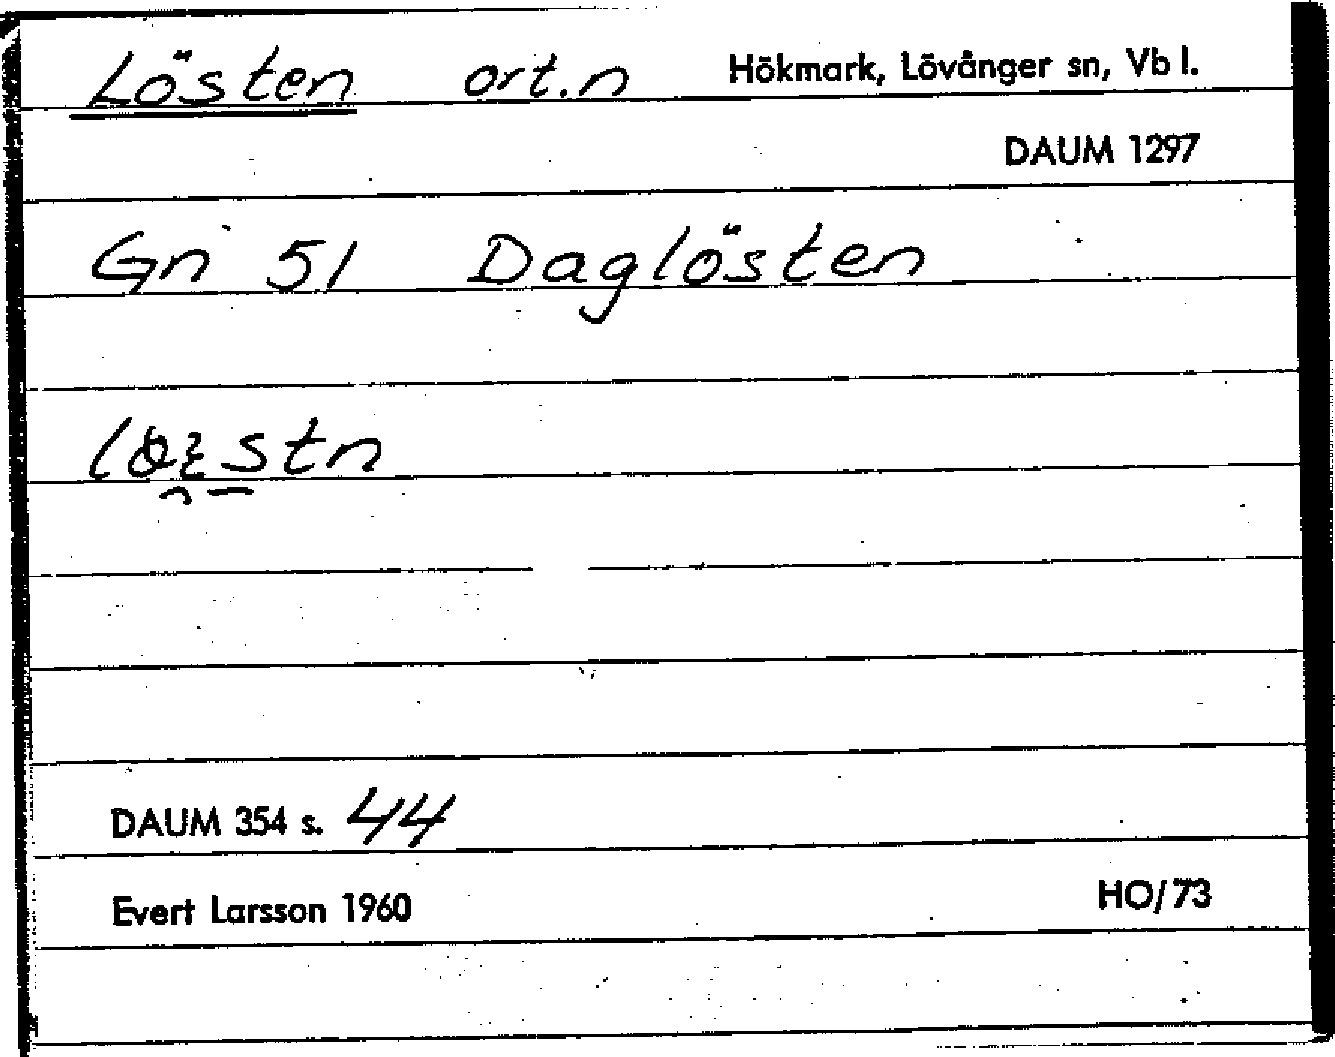 Lösten ort.n Hökmark, Lövånger sn, Vb l.
DAUM 1297
Gn 51 Daglösten
DAUM 354 s. 44
Evert Larsson 1960 HO/73